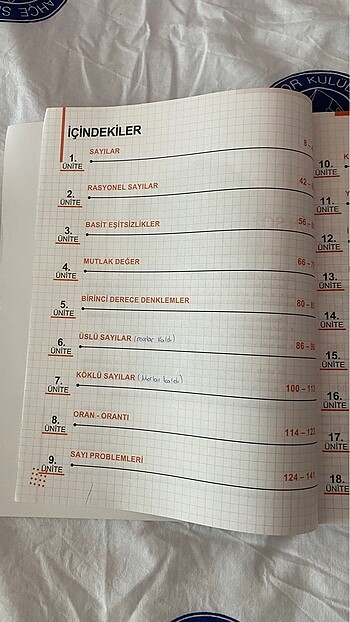 İÇİNDEKİLER
1. ÜNİTE
SAYILAR
8 -
2. ÜNİTE
RASYONEL SAYILAR
42 -
3. ÜNİTE
BASİT EŞİTSİZLİKLER
56 -
4. ÜNİTE
MUTLAK DEĞER
66 -
5. ÜNİTE
BİRİNCİ DERECE DENKLEMLER
80 -
6. ÜNİTE
ÜSLÜ SAYILAR
86 -
7. ÜNİTE
KÖKLÜ SAYILAR
100 – 113
8. ÜNİTE
ORAN - ORANTI
114 – 123
9. ÜNİTE
SAYI PROBLEMLERİ
124 – 141
10. ÜNİTE
11. ÜNİTE
12. ÜNİTE
13. ÜNİTE
14. ÜNİTE
15. ÜNİTE
16. ÜNİTE
17. ÜNİTE
18. ÜNİTE